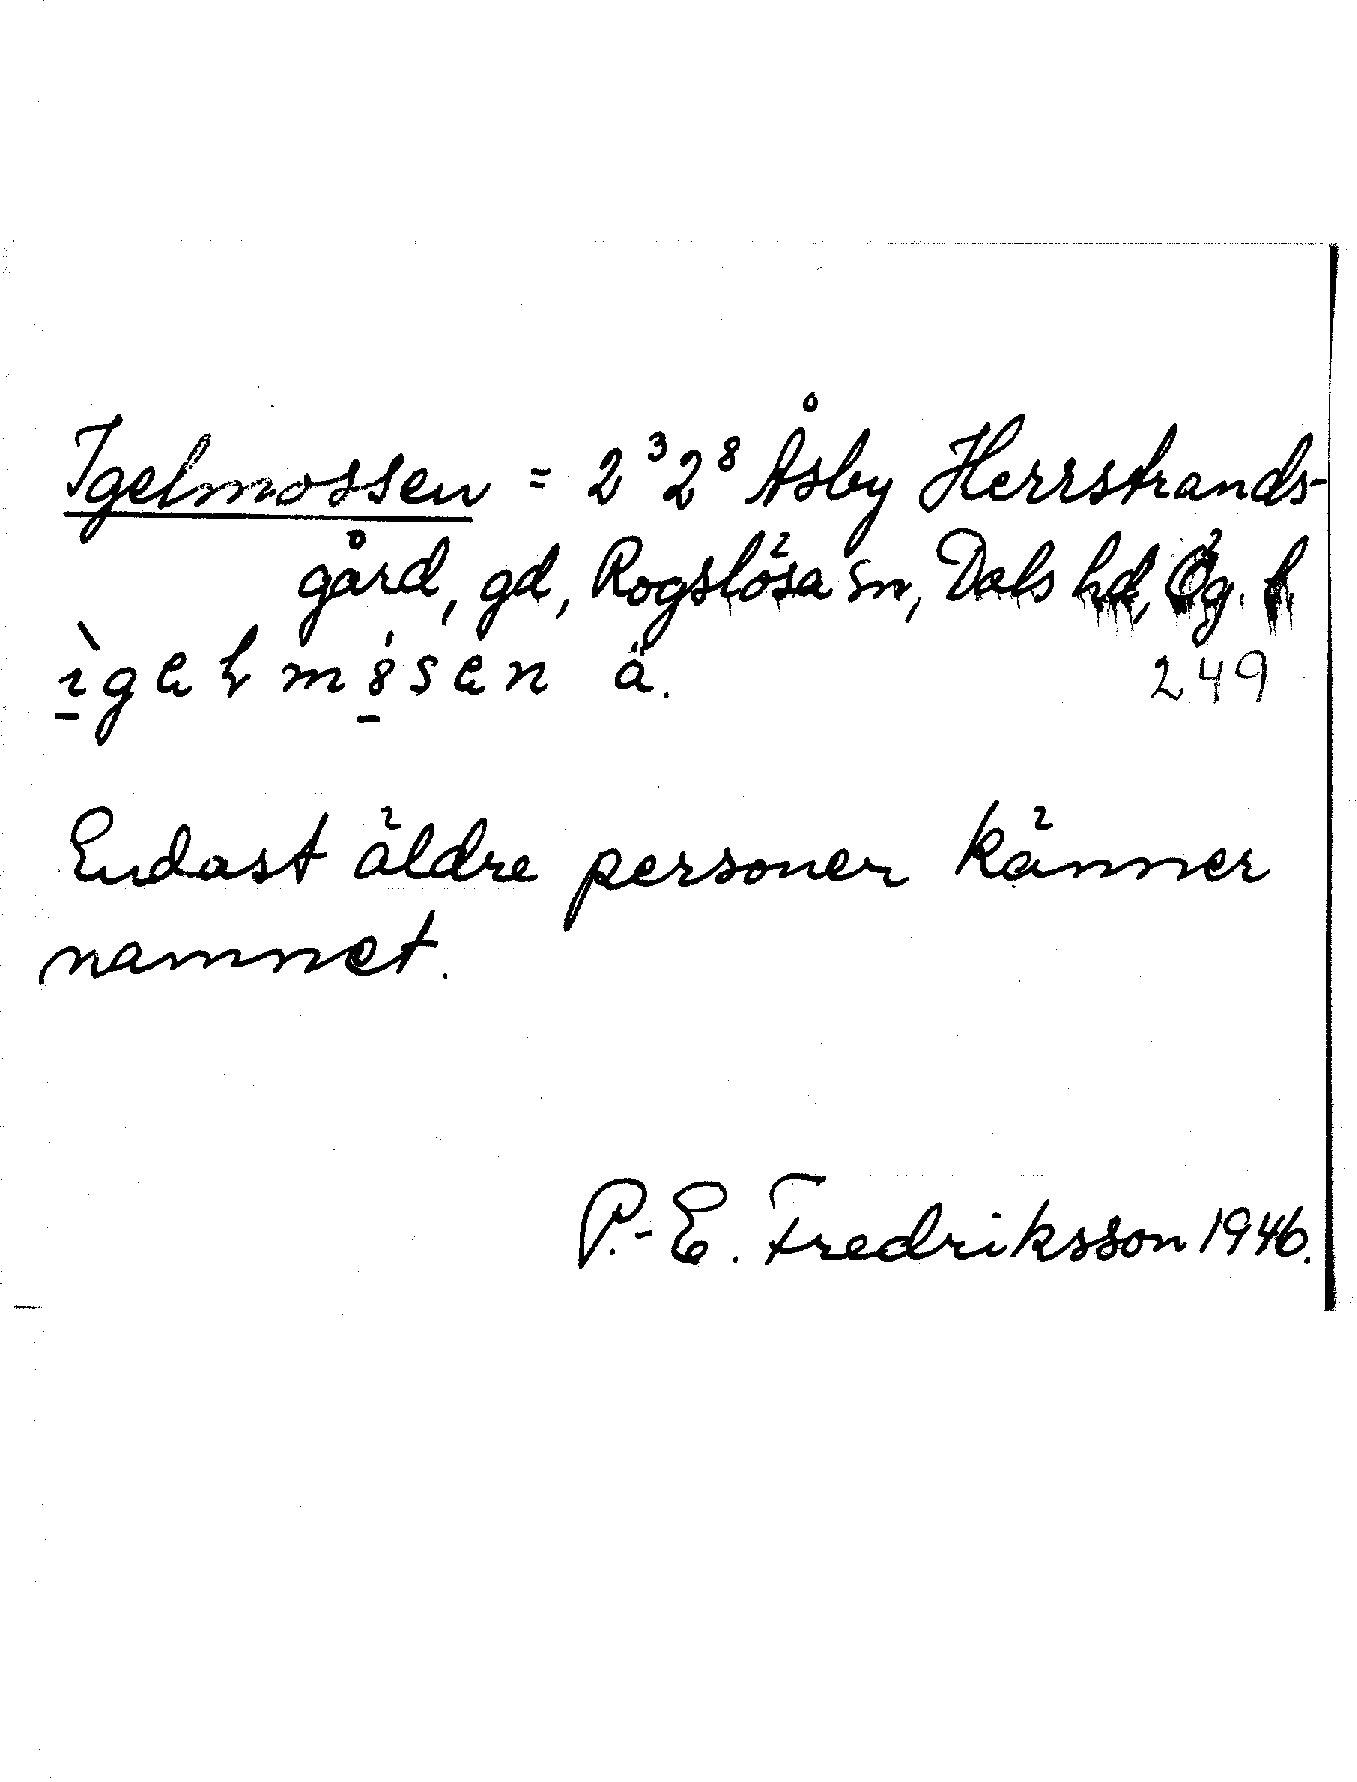 Igelmossen = 2³2⁸ Åsby Herrstrands-
gård, gd, Rogslösa sn, Dals hd, Ög. l.
ìgəl mósən ä.
249
Endast äldre personer känner
namnet.
P.-E. Fredriksson 1946.